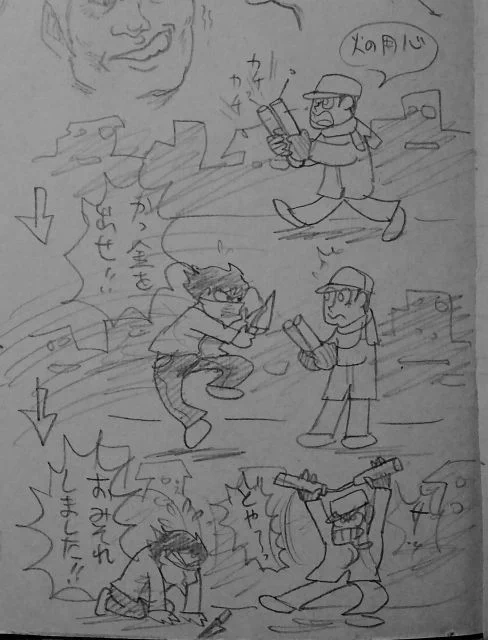 火の用心
カチ
カチ
かっ金を
出せ!!
おみそれ
しました!!
どやっ